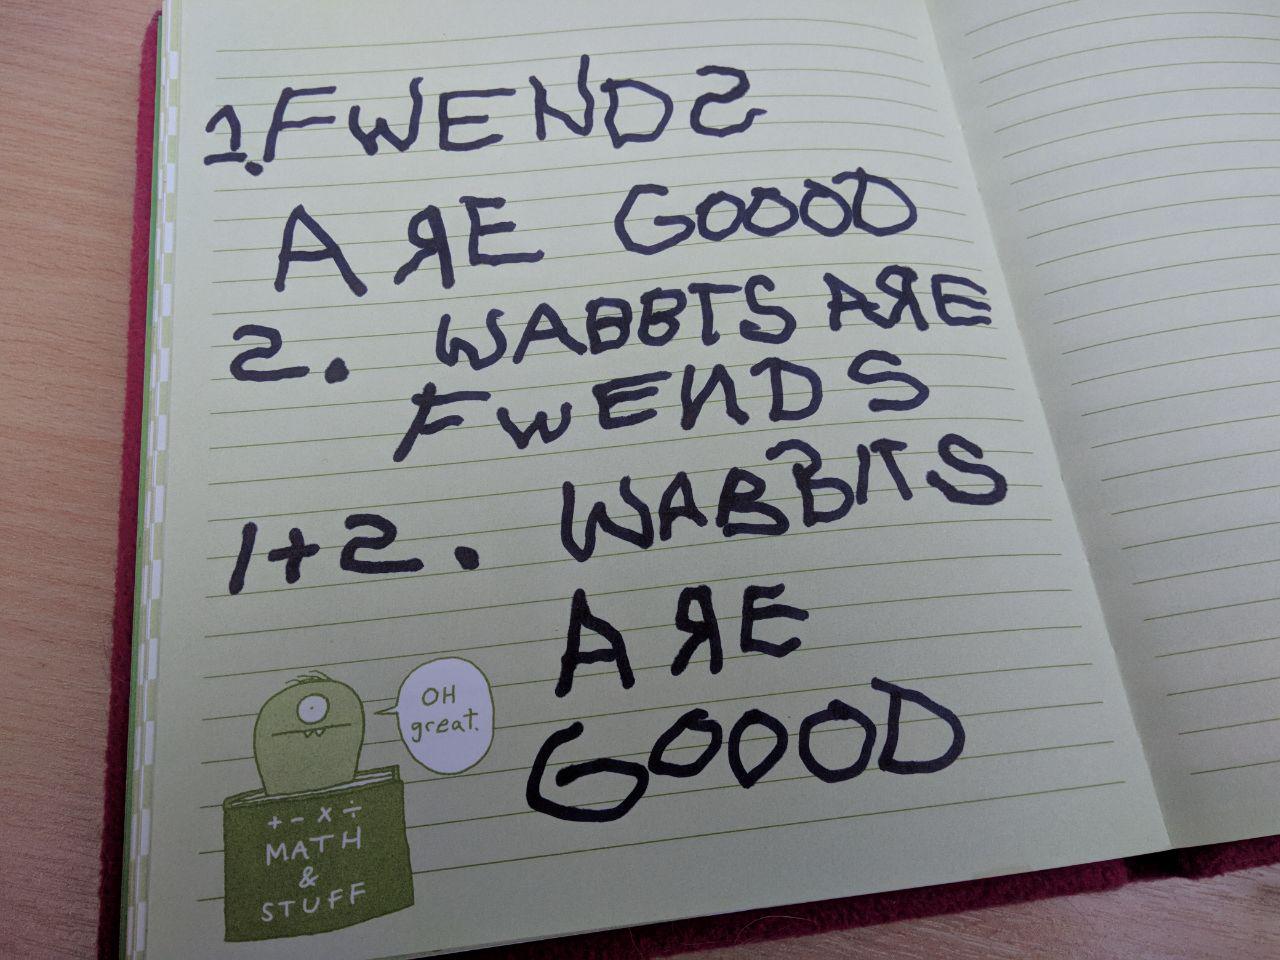 1. FWENDS
ARE GOOOD
2. WABBTS ARE
FWENDS
1+2. WABBITS
ARE
GOOOD
OH
great.
+ - x ÷
MATH
&
STUFF